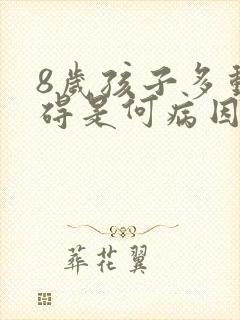 8岁孩子多
碍是何病因
葬花翼